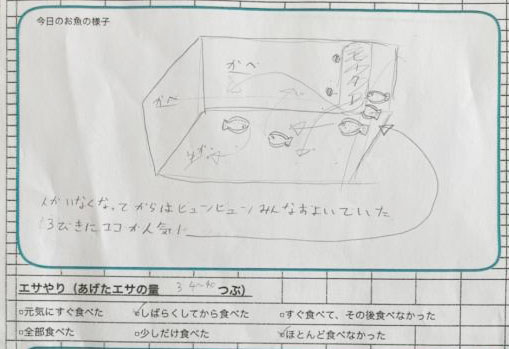 今日のお魚の様子
モーター
かべ
かべ
人がいなくなってからはヒュンヒュンみんなおよいでいた
3びきにココが人気!
エサやり(あげたエサの量 34~40 つぶ)
□元気にすぐ食べた ☑しばらくしてから食べた □すぐ食べて、その後食べなかった
□全部食べた □少しだけ食べた ☑ほとんど食べなかった